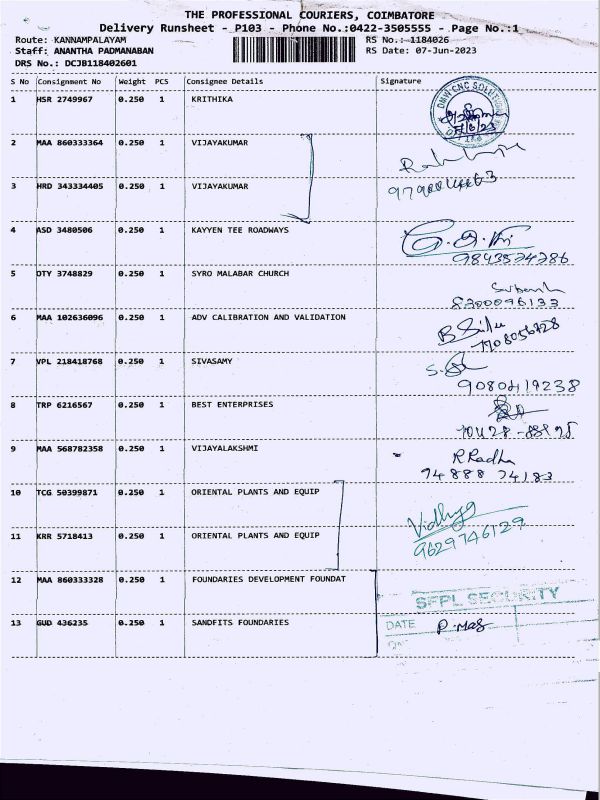 THE PROFESSIONAL COURIERS, COIMBATORE
Delivery Runsheet - P103 - Phone No.:0422-3505555 - Page No.:1
Route: KANNAMPALAYAM
RS No.: 1184026
Staff: ANANTHA PADMANABAN
RS Date: 07-Jun-2023
DRS No.: DCJB118402601
S No Consignment No Weight PCS Consignee Details Signature
1 HSR 2749967 0.250 1 KRITHIKA
DMW CNC SOLUTIONS
2 MAA 860333364 0.250 1 VIJAYAKUMAR
3 HRD 343334405 0.250 1 VIJAYAKUMAR
4 ASD 3480506 0.250 1 KAYYEN TEE ROADWAYS
9843574286
5 OTY 3748829 0.250 1 SYRO MALABAR CHURCH
8300096133
6 MAA 102636096 0.250 1 ADV CALIBRATION AND VALIDATION
7 VPL 218418768 0.250 1 SIVASAMY
9080419238
8 TRP 6216567 0.250 1 BEST ENTERPRISES
9 MAA 568782358 0.250 1 VIJAYALAKSHMI
R Radha
94888 74183
10 TCG 50399871 0.250 1 ORIENTAL PLANTS AND EQUIP
Vidhya
9629746129
11 KRR 5718413 0.250 1 ORIENTAL PLANTS AND EQUIP
12 MAA 860333328 0.250 1 FOUNDARIES DEVELOPMENT FOUNDAT
SFPL SECURITY
13 GUD 436235 0.250 1 SANDFITS FOUNDARIES
DATE